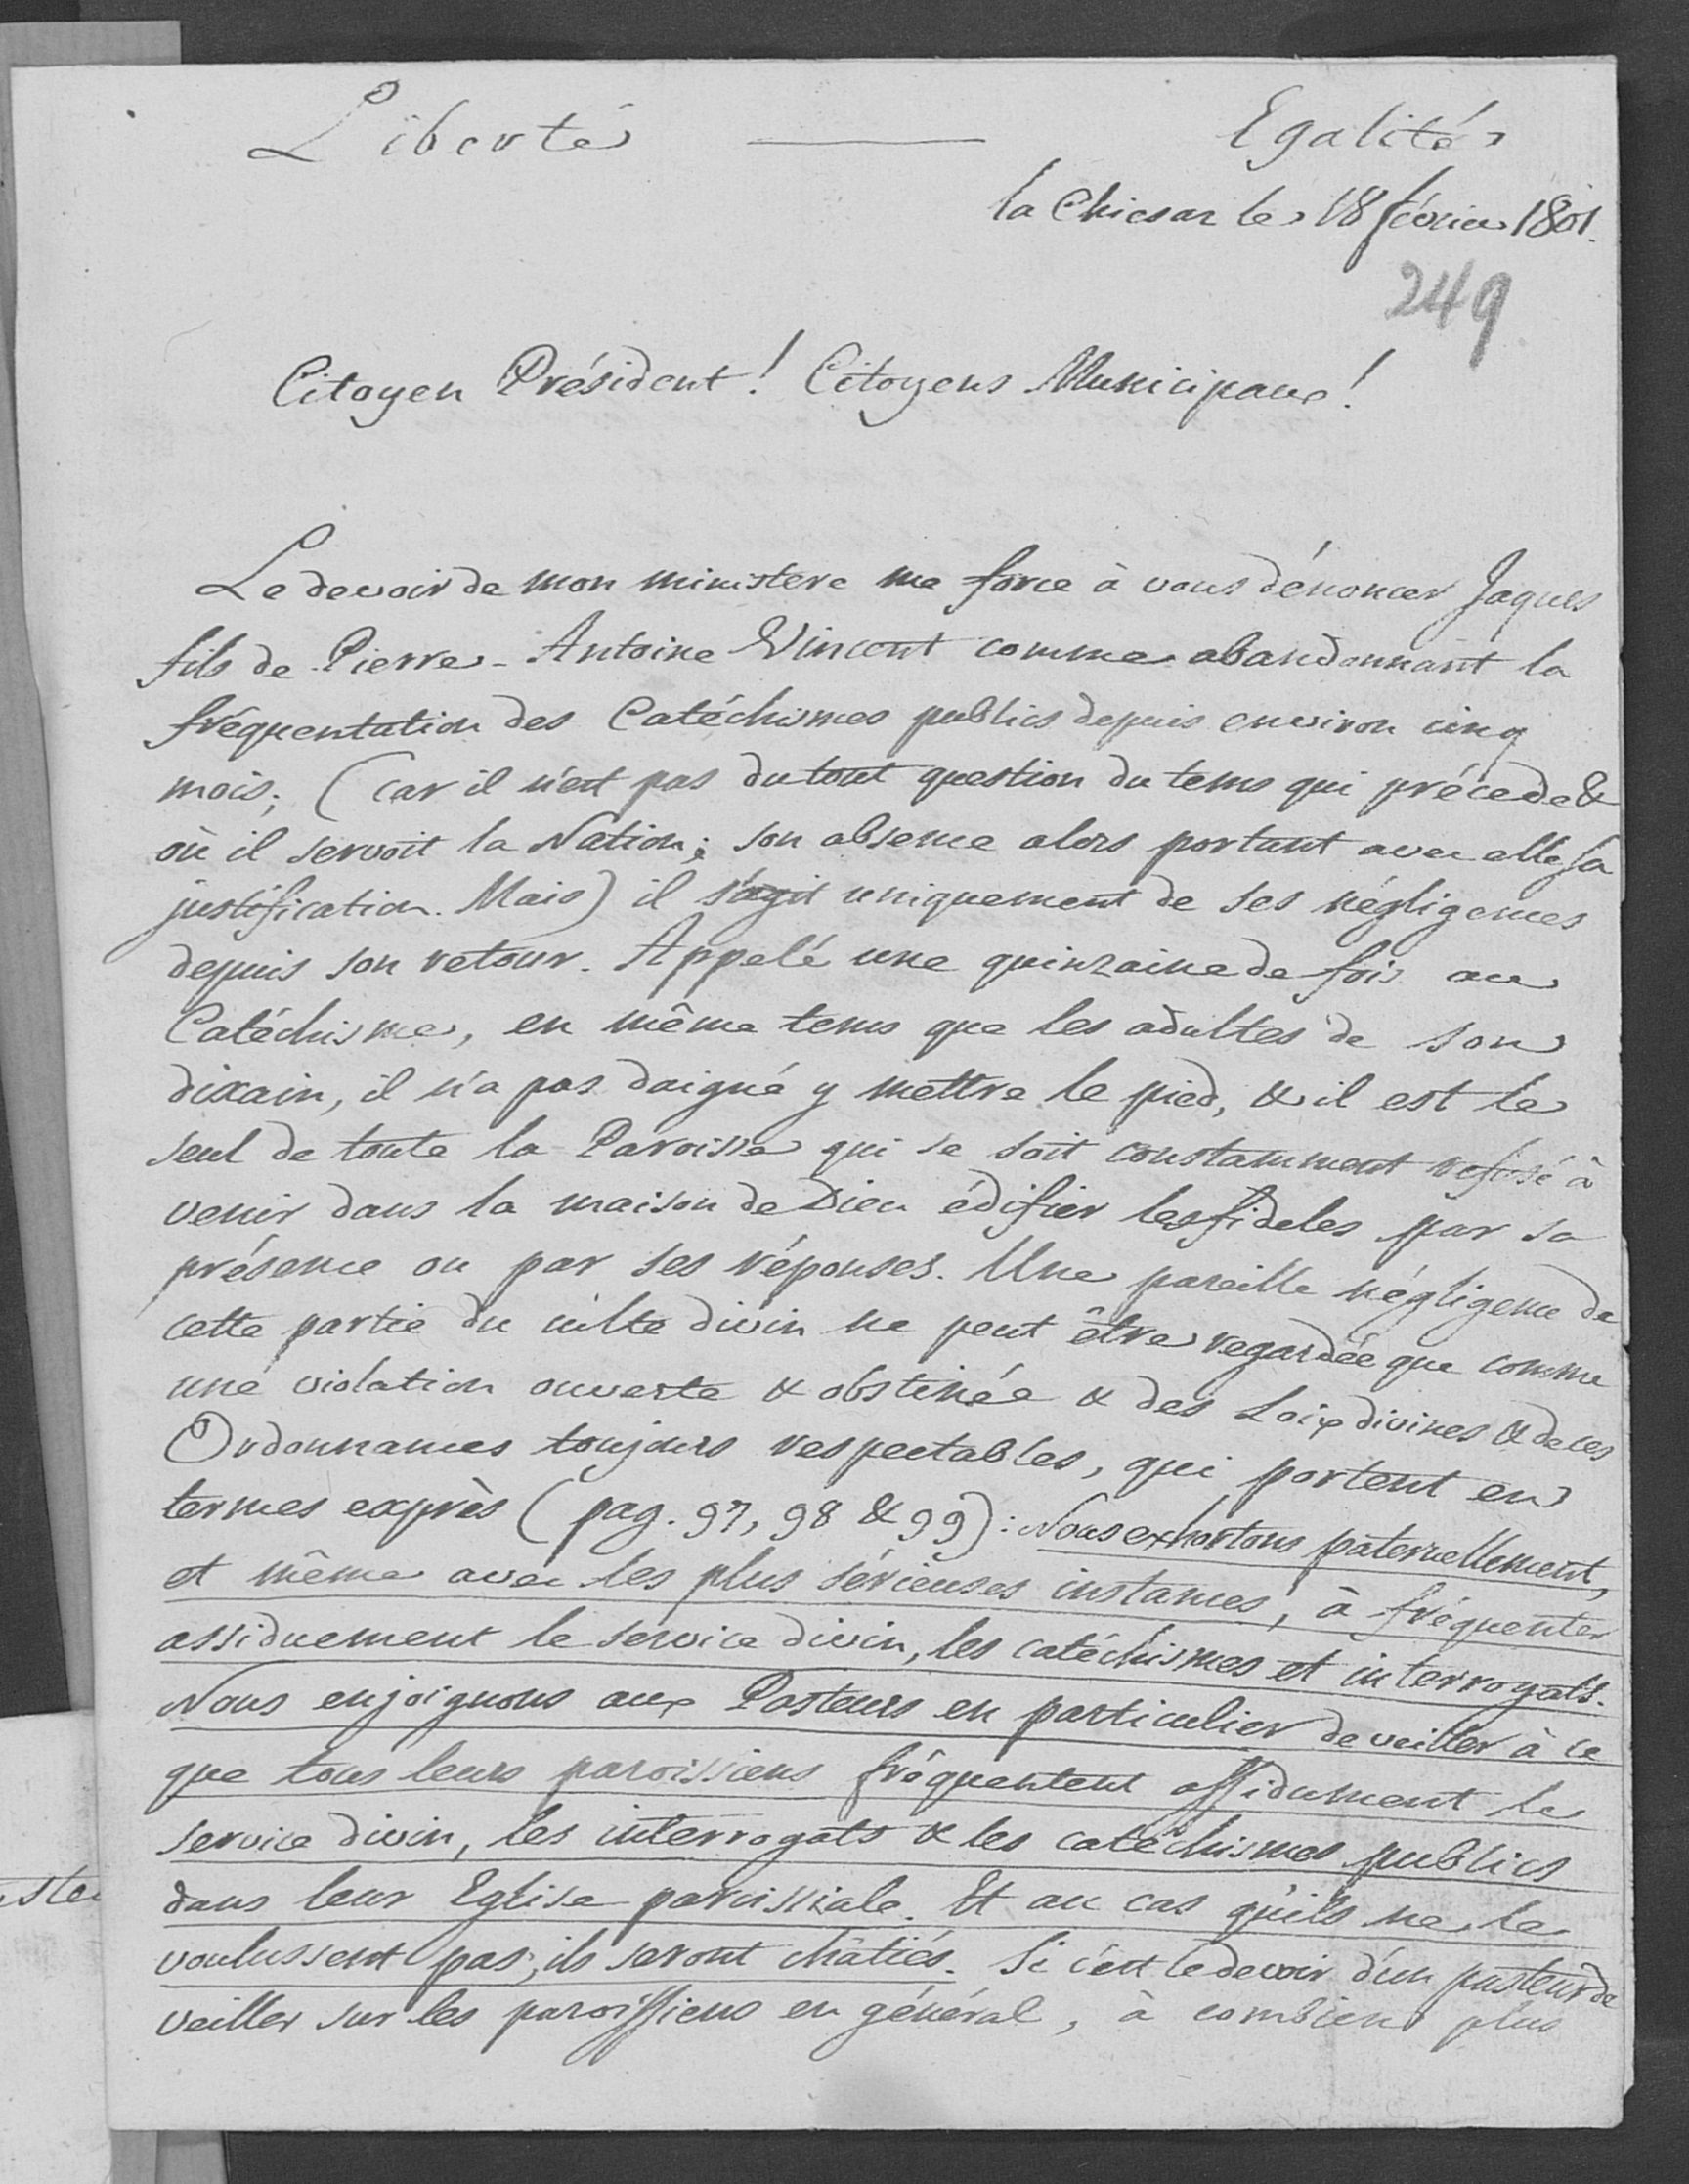 Liberté — Egalité
la Chiesaz le 18 février 1801.
249
Citoyen Président! Citoyens Municipaux!
Le devoir de mon ministere me force à vous dénoncer Jaques
fils de Pierre-Antoine Vincent comme abandonnant la
fréquentation des Catéchismes publics depuis environ cinq
mois; (car il n'est pas du tout question du tems qui précede &
où il servoit la Nation; son absence alors portant avec elle sa
justification. Mais) il s'agit uniquement de ses négligences
depuis son retour. Appelé une quinzaine de fois au
Catéchisme, en même tems que les adultes de son
dixain, il n'a pas daigné y mettre le pied, & il est le
seul de toute la Paroisse qui se soit constamment refusé à
venir dans la maison de Dieu édifier les fideles par sa
présence ou par ses réponses. Une pareille négligence de
cette partie du culte divin ne peut être regardée que comme
une violation ouverte & obstinée & des Loix divines & de ces
Ordonnances toujours respectables, qui portent en
termes exprès (pag. 97, 98 & 99): Nous exhortons paternellement,
et même avec les plus sérieuses instances, à fréquenter
assiduement le service divin, les catéchismes et interrogats.
Nous enjoignons aux Pasteurs en particulier de veiller à ce
que tous leurs paroissiens fréquentent assidument le
service divin, les interrogats & les catéchismes publics
dans leur Eglise paroissiale. Et au cas qu'ils ne le
voulussent pas, ils seront châtiés. Si c'est le devoir d'un pasteur de
veiller sur les paroissiens en général, à combien plus